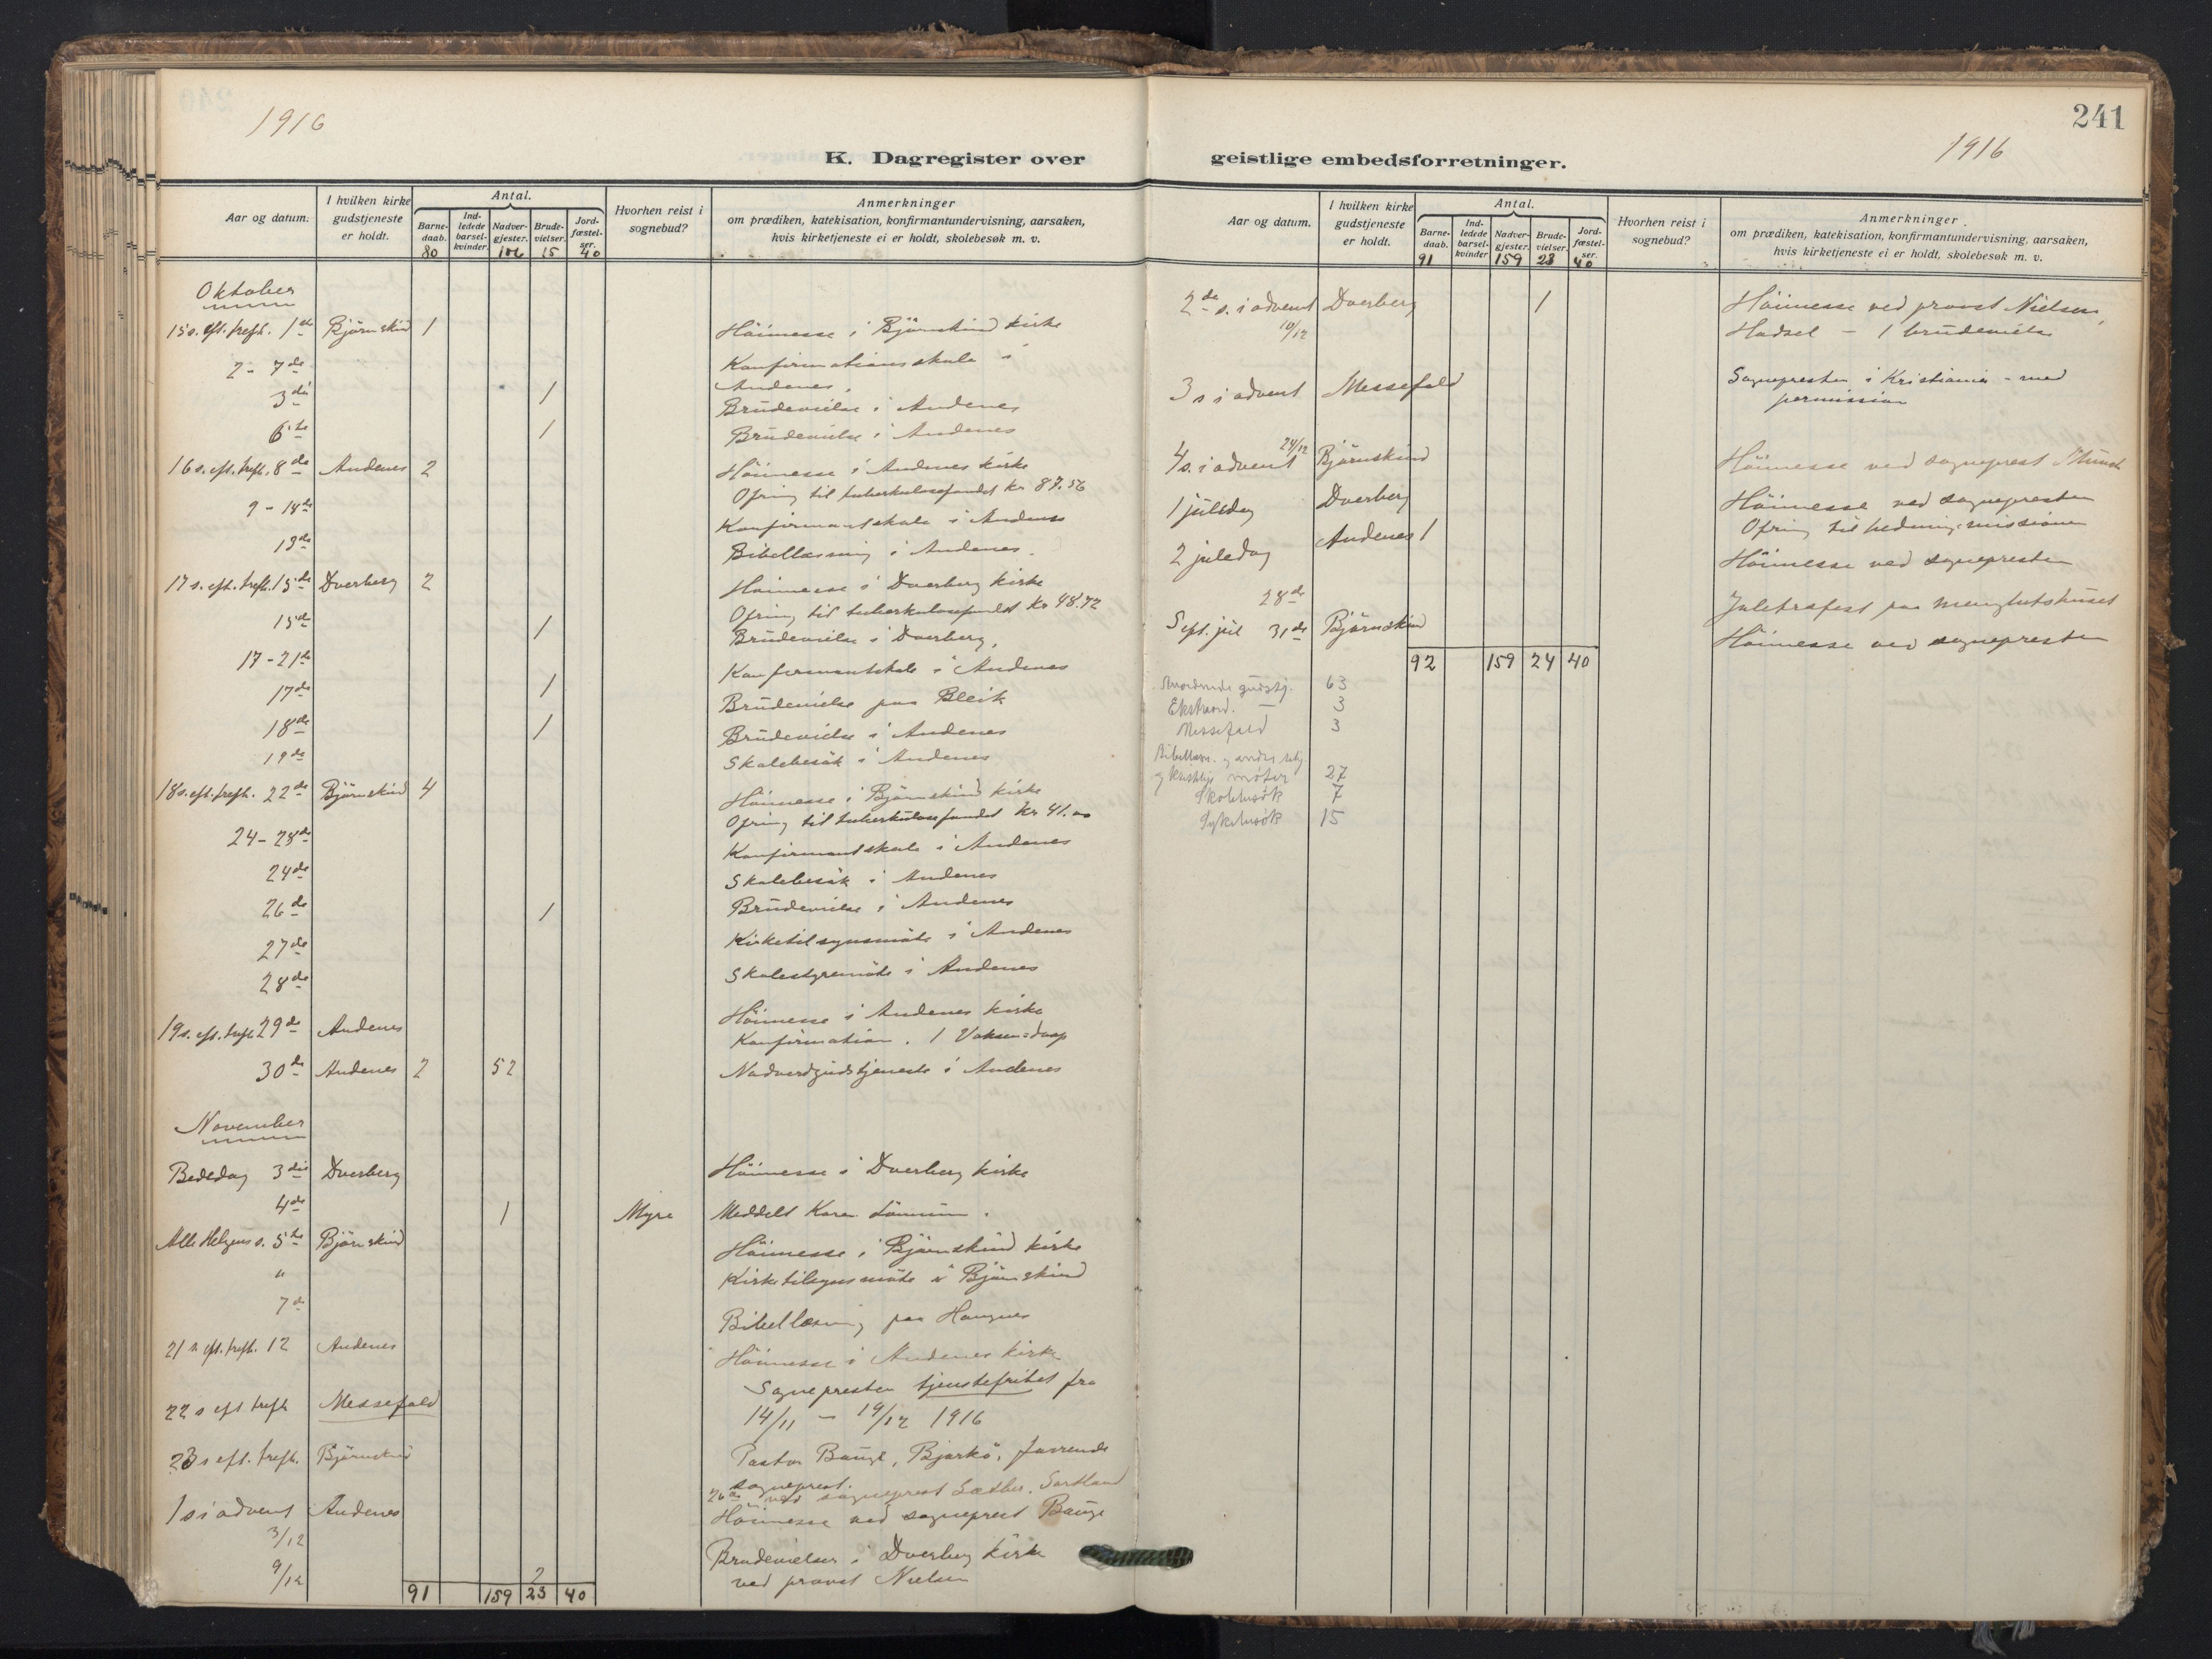 1916
K. Dagregister over
Aar og datum.
I hvilken kirke gudstjeneste er holdt.
Antal.
Barne-daab.
Ind-ledede barsel-kvinder.
Nadver-gjester.
Brude-vielser.
Jord-fæstel-ser.
Hvorhen reist i sognebud?
Anmerkninger
om prædiken, katekisation, konfirmantundervisning, aarsaken,
hvis kirketjeneste ei er holdt, skolebesøk m. v.
80 106 15 40
Oktober
15 s. eft. trefh. 1ste Björnskind 1 Höimesse i Björnskind kirke
2-7de Konfirmationsskole i
Andenes.
3die 1 Brudevielse i Andenes
6te 1 Brudevielse i Andenes
16 s. eft. trefh. 8de Andenes 2 Höimesse i Andenes kirke
Ofring til tuberkulosefondet kr 87.56
9-14de Konfirmantskole i Andenes
13de Bibellæsning i Andenes.
17 s. eft. trefh. 15de Dverberg 2 Höimesse i Dverberg kirke
Ofring til tuberkulosefondet kr 48.72
15de 1 Brudevielse i Dverberg.
17-21de Konfirmantskole i Andenes
17de 1 Brudevielse paa Bleik
18de 1 Brudevielse i Andenes
19de Skolebesök i Andenes
18 s. eft. trefh. 22de Björnskind 4 Höimesse i Björnskind kirke
Ofring til tuberkulosefondet kr 41.00
24-28de Konfirmantskole i Andenes
24de Skolebesök i Andenes
26de 1 Brudevielse i Andenes
27de Kirketilsynsmöte i Andenes
28de Skolestyremöte i Andenes
19 s. eft. trefh. 29de Andenes Höimesse i Andenes kirke
Konfirmation. 1 Voksen=daap
30de Andenes 2 52 Nadverdgudstjeneste i Andenes
November
Bededag 3die Dverberg Höimesse i Dverberg kirke
4de 1 Myre Meddelt Karen
Alle Helgens s. 5te Björnskind Höimesse i Björnskind kirke
" Kirketilsynsmöte i Björnskind
7de Bibellæsning paa Haugnes
21 s. eft. trefh. 12 Andenes Höimesse i Andenes kirke
Sognepresten tjenstefrihet fra
22 s eft trefh Messefald 14/11 - 19/12 1916
23 s eft. trefh. Björnskind Pastor Bauge, Bjarkö, fungerende
sogneprest.
26de ved sogneprest Sæther, Sortland
1 s i advent Andenes Höimesse ved sogneprest Bauge
3/12
9/12 2 Brudevielser i Dverberg kirke
ved provst Nielsen
91 159 23 40
241
1916
geistlige embedsforretninger.
Aar og datum.
I hvilken kirke gudstjeneste er holdt.
Antal.
Barne-daab.
Ind-ledede barsel-kvinder
Nadver-gjester.
Brude-vielser.
Jord-fæstel-ser.
Hvorhen reist i sognebud?
Anmerkninger
om prædiken, katekisation, konfirmantundervisning, aarsaken,
hvis kirketjeneste ei er holdt, skolebesøk m. v.
91 159 23 40
2de s. i advent Dverberg 1 Höimesse ved provst Nielsen,
10/12 Hadsel - 1 brudevielse
3 s i advent Messefald Sognepresten i Kristiania - med
permission
24/12
4 s. i advent Björnskind Höimesse ved sogneprest Munch
1 juledag Dverberg Höimesse ved sognepresten
Ofring til hedningemissionen
2 juledag Andenes 1 Höimesse ved sognepresten
28de Juletræfest paa menighetshuset
S. eft. jul 31de Björnskind Höimesse ved sognepresten
92 159 24 40
Anordnede gudstj. 63
Ekstraord. — 3
Messefald 3
Bibellæsn. og andre
og kristelige møter 27
Skolebesøk 7
Sykebesøk 15